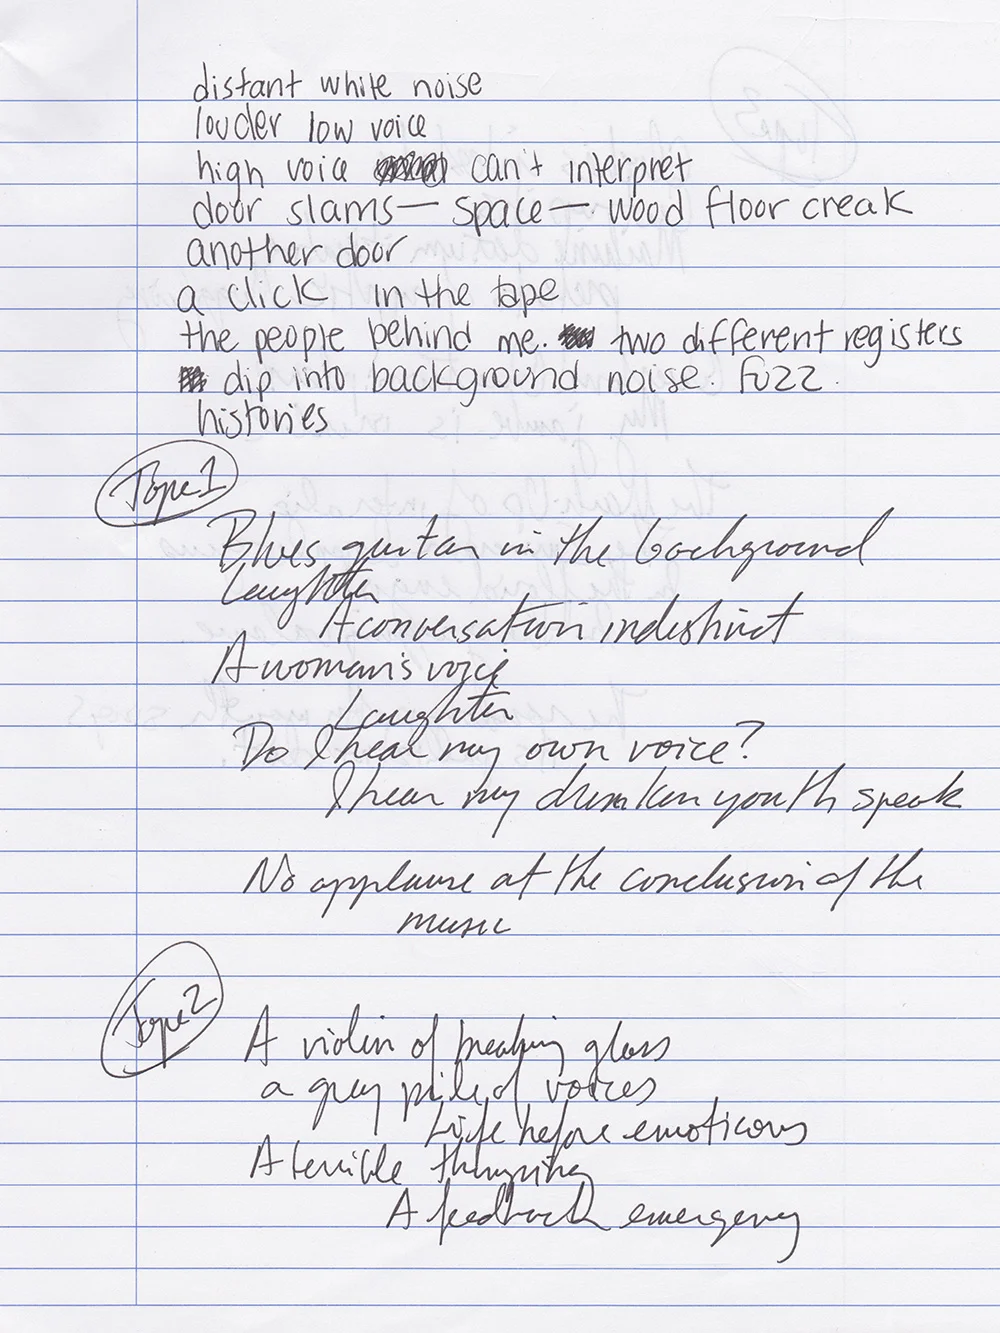 distant white noise
louder low voice
high voice can't interpret
door slams — space — wood floor creak
another door
a click in the tape
the people behind me. two different registers
dip into background noise. fuzz.
histories
Tape 1
Blues guitar in the background
Laughter
A conversation indistinct
A woman's voice
Laughter
Do I hear my own voice?
I hear my drunken youth speak
No applause at the conclusion of the
music
Tape 2
A violin of breaking glass
a gray pile of voices
Life before emoticons
A terrible thumping
A feedback emergency